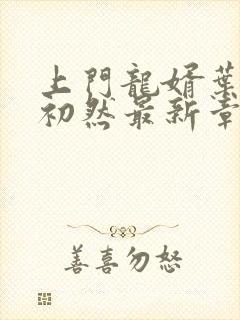 上門龍婿葉
初然最新章
善喜勿怒